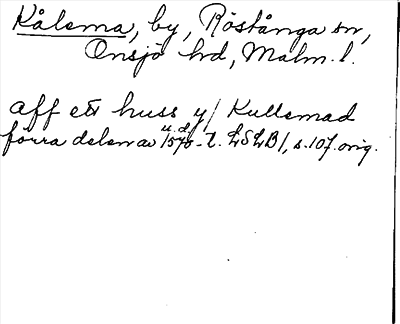 Kålema, by, Röstånga sn,
Onsjö hd, Malm. l.
aff ett huss y/ Kullemad
förra delen av 1570-t. LSLB1, s. 107. orig.
u. d.